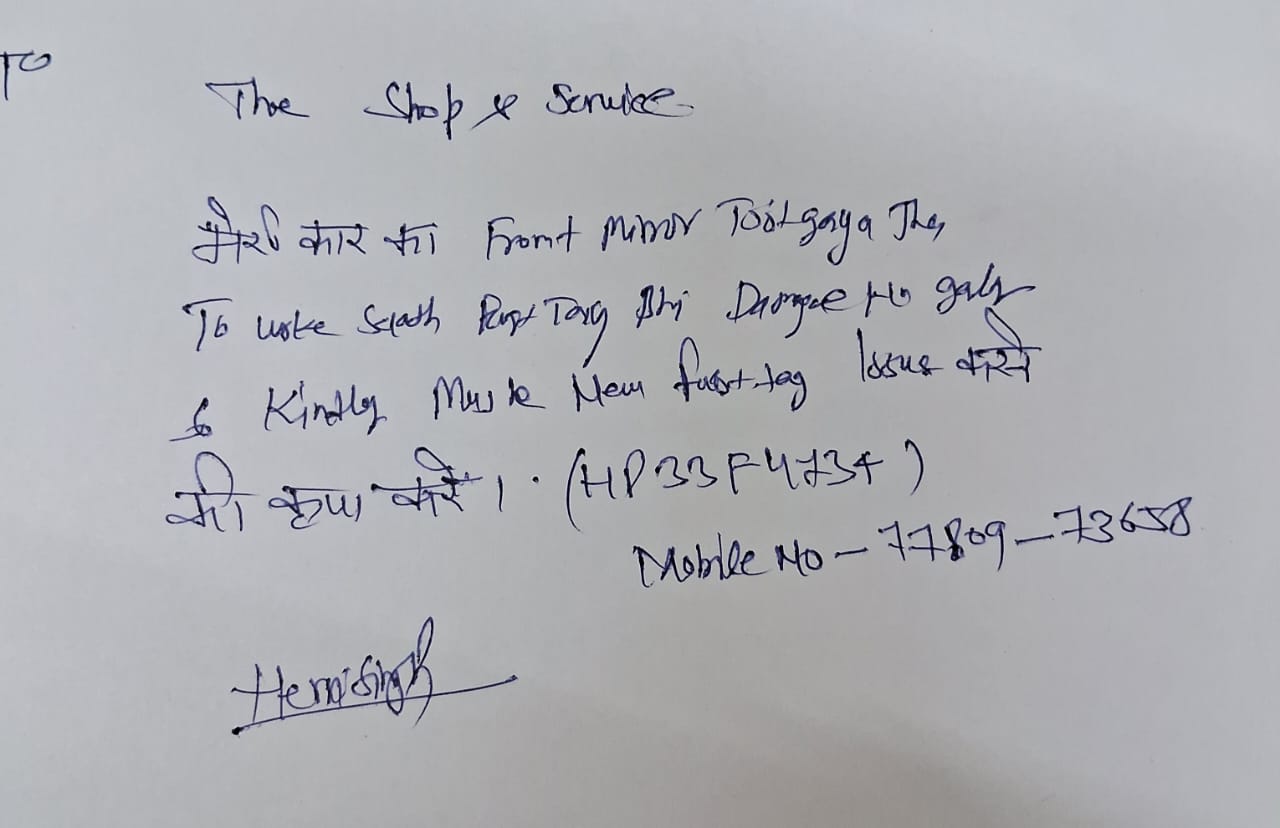 TO
The Shop & Service
मेरी कार का Front Mirror Toot gaya Tha,
To uske Sath Fast Tag Bhi Damage Ho gaya
Kindly Mujhe New fast-tag Issue करने
की कृपा करें। (HP33F4734)
Mobile No - 77809-73658
Hemsingh